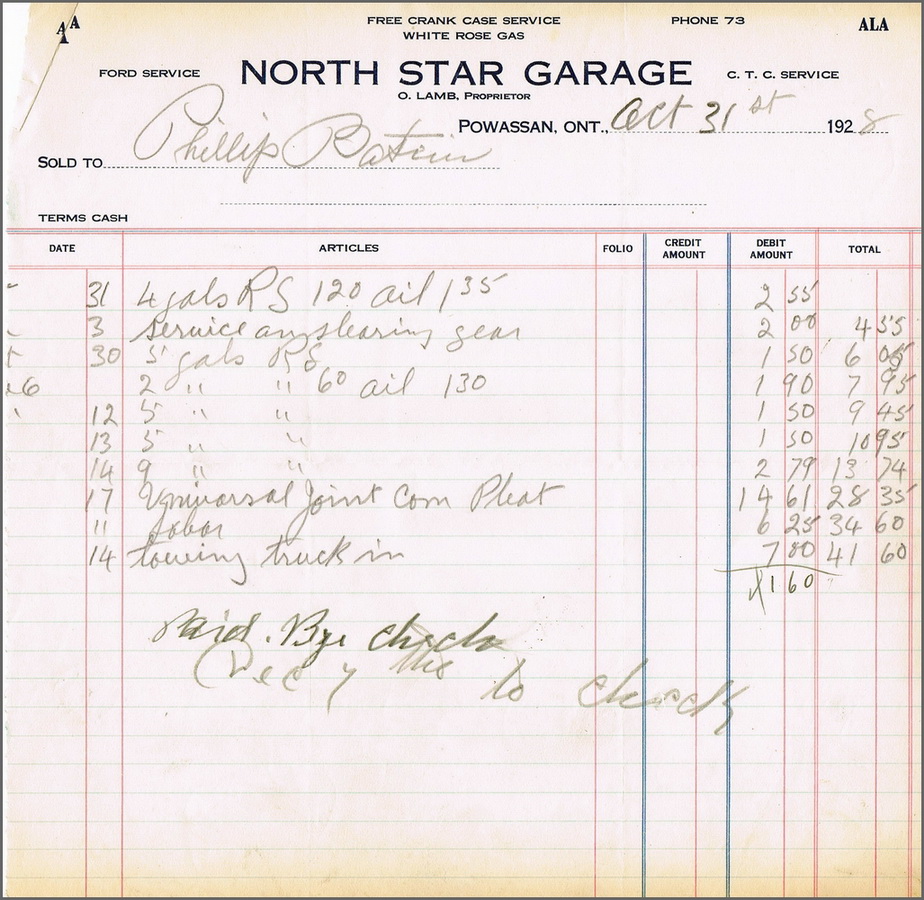 AAA
FREE CRANK CASE SERVICE
PHONE 73
ALA
WHITE ROSE GAS
FORD SERVICE
NORTH STAR GARAGE
C. T. C. SERVICE
O. LAMB, PROPRIETOR
POWASSAN, ONT., Oct 31st 1928
SOLD TO Phillip
TERMS CASH
DATE ARTICLES FOLIO CREDIT AMOUNT DEBIT AMOUNT TOTAL
31 4 gals RS 120 ail 135 2 55
3 Service stearing gear 2 00 4 55
30 5 gals RS 1 50 6 05
2 " " 60 ail 130 1 90 7 95
12 5 " " 1 50 9 45
13 5 " " 1 50 10 95
14 9 " " 2 79 13 74
17 Universal Joint Com Pleat 14 61 28 35
" Labor 6 25 34 60
14 towing truck in 7 00 41 60
41 60
Paid. Bye check
to check